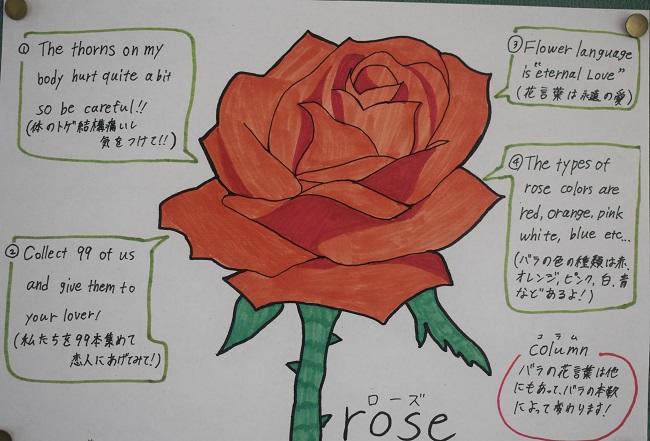 ① The thorns on my
body hurt quite a bit
so be careful!!
(体のトゲ結構痛いし
気をつけて!!)
② Collect 99 of us
and give them to
your lover!
(私たちを99本集めて
恋人にあげてみて!)
③ Flower language
is "eternal Love"
(花言葉は永遠の愛)
④ The types of
rose colors are
red, orange, pink
white, blue etc...
(バラの色の種類は赤、
オレンジ、ピンク、白、青
などあるよ!)
コラム
column
バラの花言葉は他
にもあって、バラの本数
によって変わります!
ローズ
rose